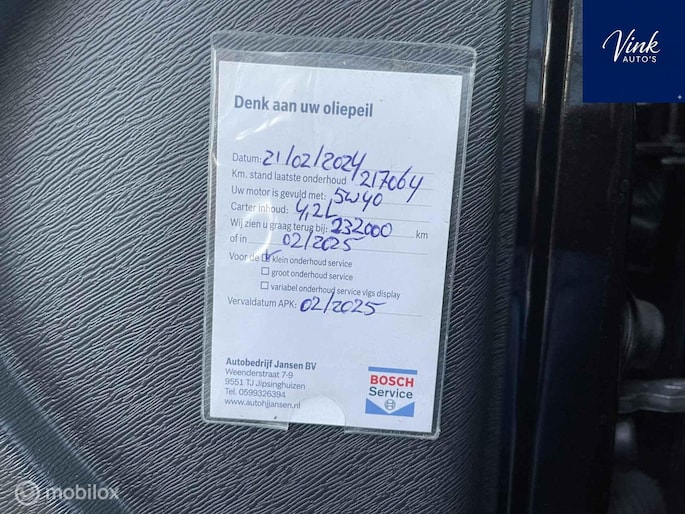 Vink
AUTO'S
Denk aan uw oliepeil
Datum: 21/02/2024
Km. stand laatste onderhoud 217064
Uw motor is gevuld met: 5W40
Carter inhoud: 4,2L
Wij zien u graag terug bij: 232000 km
of in 02/2025
Voor de klein onderhoud service
groot onderhoud service
variabel onderhoud service vlgs display
Vervaldatum APK: 02/2025
Autobedrijf Jansen BV
Weenderstraat 7-9
9551 TJ Jipsinghuizen
Tel. 0599326394
www.autohjjansen.nl
BOSCH
Service
mobilox